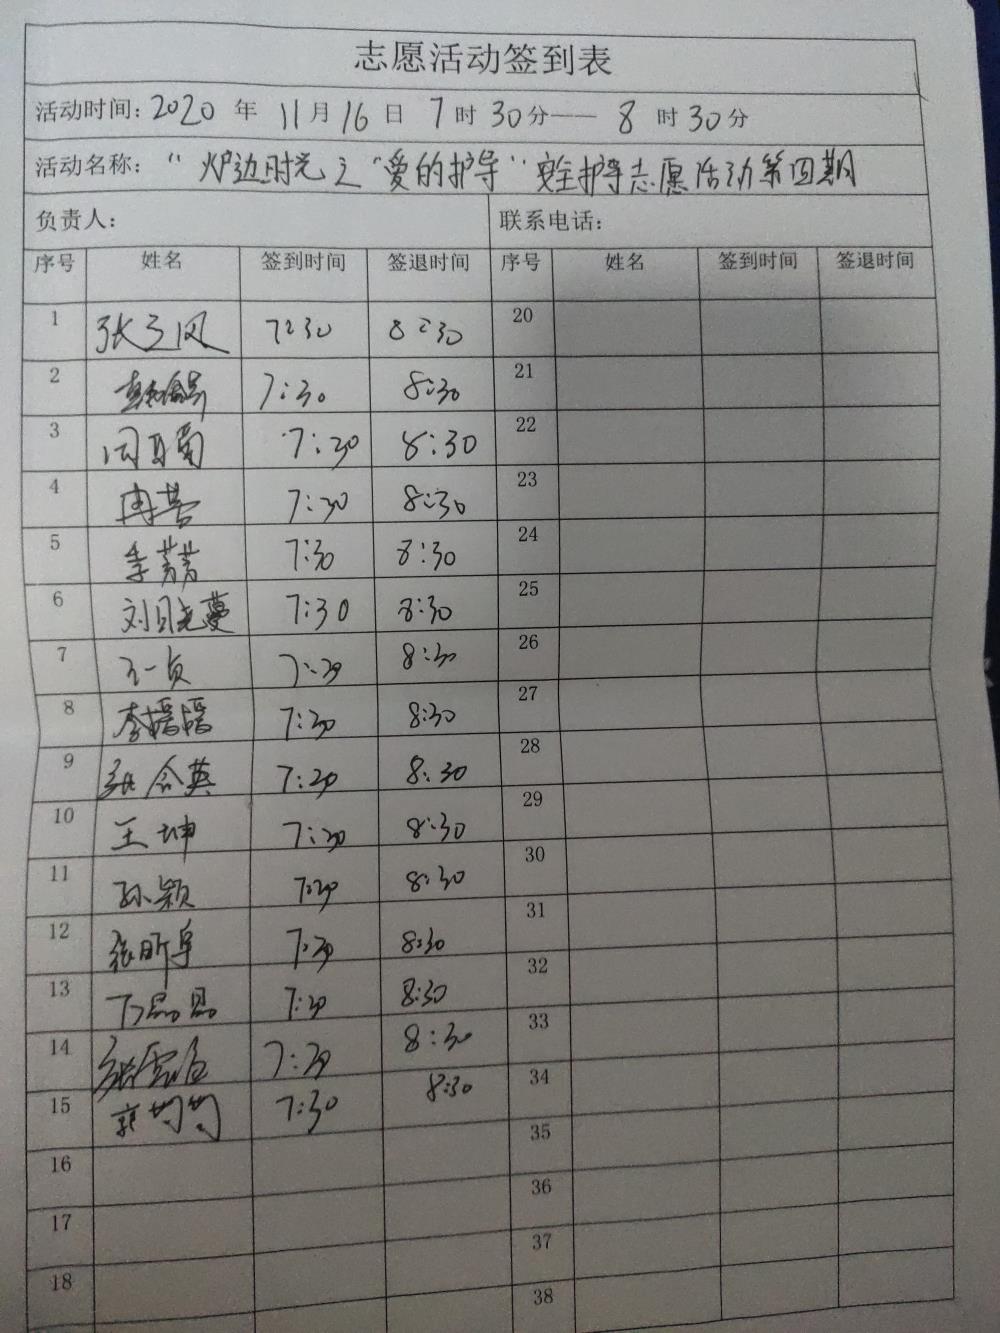 志愿活动签到表
活动时间：2020 年 11月 16日 7时30分——8时30分
活动名称："炉边时光之"爱的护导"安全护导志愿活动第四期
负责人： 联系电话：
序号 姓名 签到时间 签退时间 序号 姓名 签到时间 签退时间
1 7:30 8:30 20
2 7:30 8:30 21
3 7:30 8:30 22
4 冉营 7:30 8:30 23
5 李芳芳 7:30 8:30 24
6 刘晓蔓 7:30 8:30 25
7 王一贞 7:30 8:30 26
8 李嫱嫱 7:30 8:30 27
9 张念英 7:30 8:30 28
10 王坤 7:30 8:30 29
11 孙颖 7:30 8:30 30
12 张昕 7:30 8:30 31
13 丁晶晶 7:30 8:30 32
14 7:30 8:30 33
15 郭苟苟 7:30 8:30 34
16 35
17 36
18 37
38